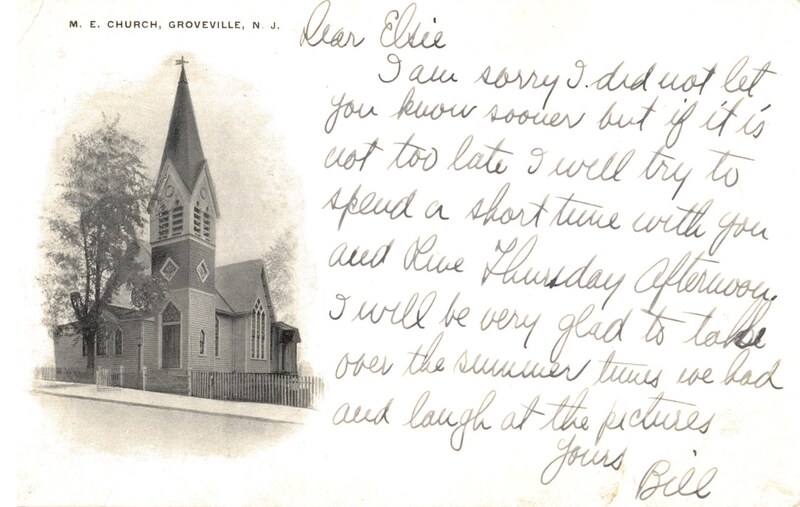 M. E. CHURCH, GROVEVILLE, N. J.
Dear Elsie
I am sorry I did not let
you know sooner but if it is
not too late I will try to
spend a short time with you
and Thursday Afternoon.
I will be very glad to talk
over the summer times we had
and laugh at the pictures
Yours
Bill